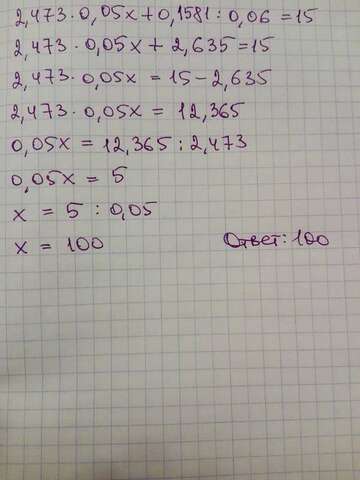 2,473 · 0,05x + 0,1581 : 0,06 = 15
2,473 · 0,05x + 2,635 = 15
2,473 · 0,05x = 15 - 2,635
2,473 · 0,05x = 12,365
0,05x = 12,365 : 2,473
0,05x = 5
x = 5 : 0,05
x = 100 Ответ: 100